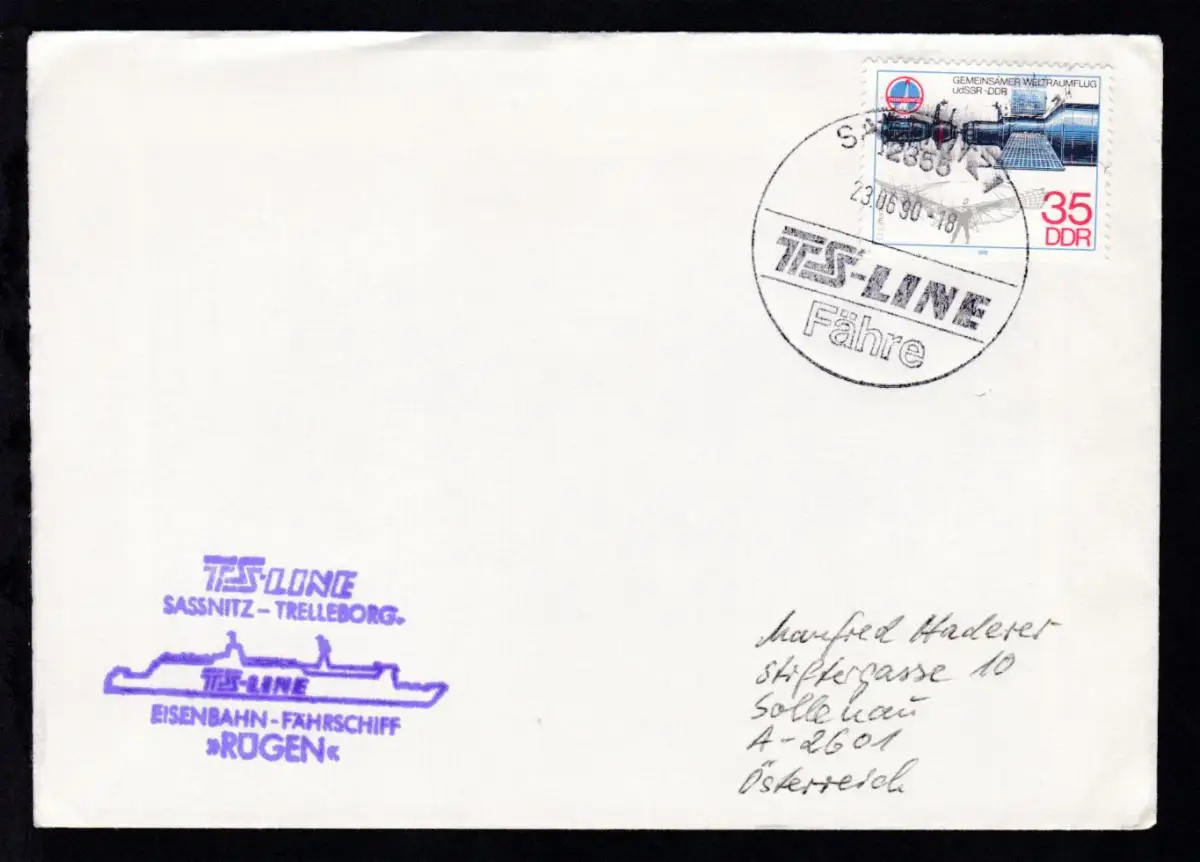 GEMEINSAMER WELTRAUMFLUG
UdSSR-DDR
35
DDR
2355
23.06.90-18
TS-LINE
Fähre
TS-LINE
SASSNITZ - TRELLEBORG.
TS-LINE
EISENBAHN - FÄHRSCHIFF
»RÜGEN«
Manfred Haderer
Stiftergasse 10
Sollenau
A-2601
Österreich